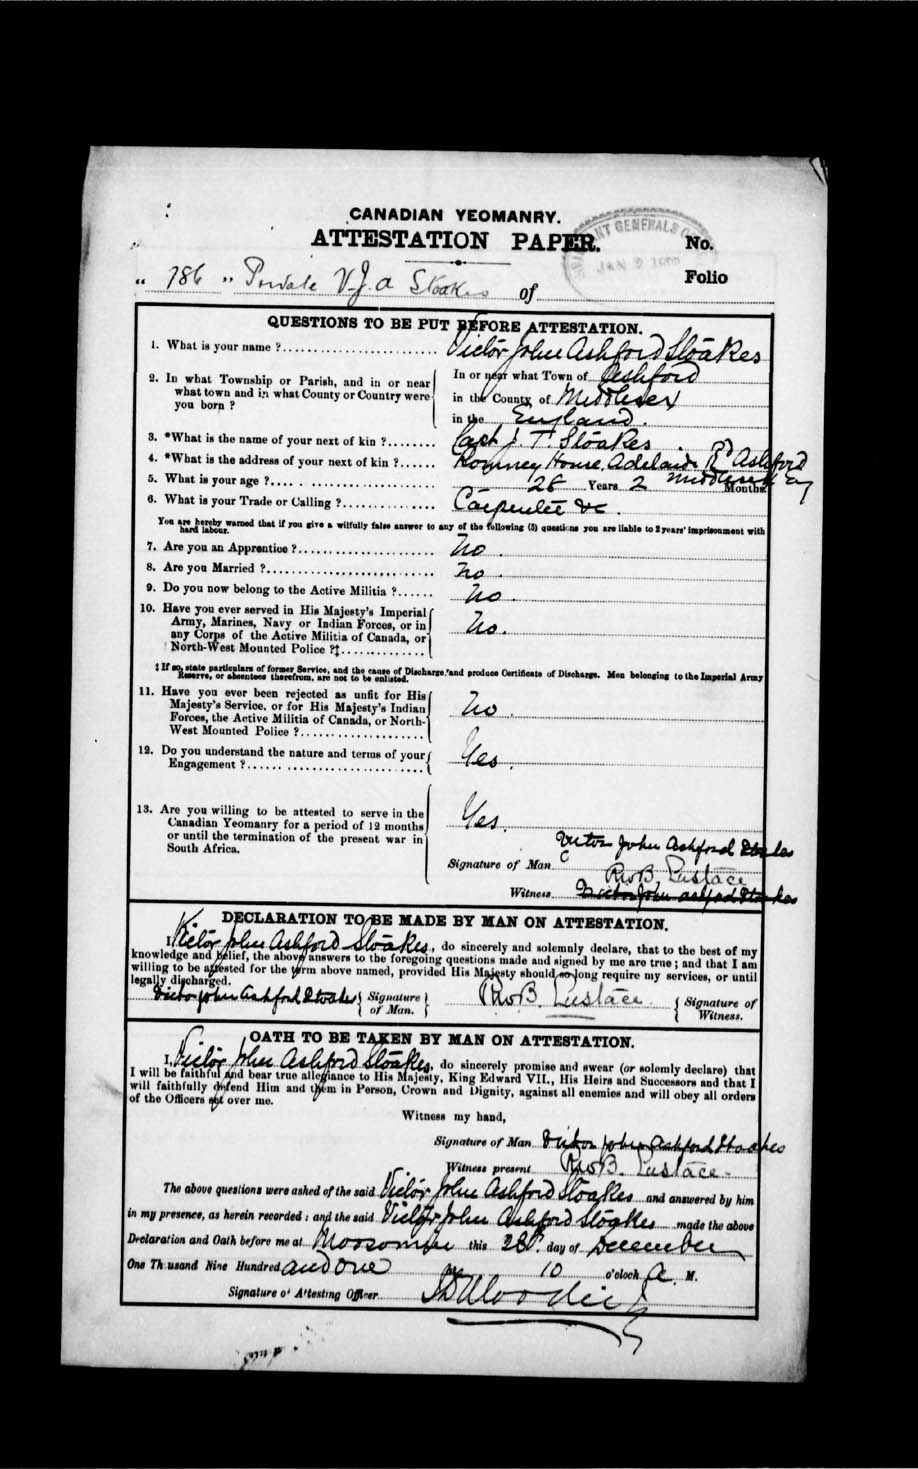 CANADIAN YEOMANRY.
ATTESTATION PAPER.
No.
Folio
GENERALS
JAN 1902
" 786 " Private V. J. A Stoakes of
QUESTIONS TO BE PUT BEFORE ATTESTATION.
1. What is your name ? Victor John Ashford Stoakes
2. In what Township or Parish, and in or near what town and in what County or Country were you born ?
In or near what Town of Ashford
in the County of Middlesex
in the England.
3. *What is the name of your next of kin ? Capt J. T. Stoakes
4. *What is the address of your next of kin ? Romney House, Adelaide Rd Ashford
Middlesex Eng
5. What is your age ? 28 Years 2 Months.
6. What is your Trade or Calling ? Carpenter &c.
You are hereby warned that if you give a wilfully false answer to any of the following (5) questions you are liable to 2 years' imprisonment with
hard labour.
7. Are you an Apprentice ? No.
8. Are you Married ? No.
9. Do you now belong to the Active Militia ? No.
10. Have you ever served in His Majesty's Imperial
Army, Marines, Navy or Indian Forces, or in
any Corps of the Active Militia of Canada, or
North-West Mounted Police ?‡ No.
‡ If so, state particulars of former Service, and the cause of Discharge, and produce Certificate of Discharge. Men belonging to the Imperial Army
Reserve, or absentees therefrom, are not to be enlisted.
11. Have you ever been rejected as unfit for His
Majesty's Service, or for His Majesty's Indian
Forces, the Active Militia of Canada, or North-
West Mounted Police ? No.
12. Do you understand the nature and terms of your
Engagement ? Yes.
13. Are you willing to be attested to serve in the
Canadian Yeomanry for a period of 12 months
or until the termination of the present war in
South Africa. Yes.
Signature of Man Victor John Ashford Stoakes
R W B. Eustace
Witness Victor John Ashford Stoakes
DECLARATION TO BE MADE BY MAN ON ATTESTATION.
I, Victor John Ashford Stoakes, do sincerely and solemnly declare, that to the best of my
knowledge and belief, the above answers to the foregoing questions made and signed by me are true ; and that I am
willing to be attested for the term above named, provided His Majesty should so long require my services, or until
legally discharged.
Victor John Ashford Stoakes { Signature of Man. } R W B. Eustace { Signature of Witness.
OATH TO BE TAKEN BY MAN ON ATTESTATION.
I, Victor John Ashford Stoakes, do sincerely promise and swear (or solemnly declare) that
I will be faithful and bear true allegiance to His Majesty, King Edward VII., His Heirs and Successors and that I
will faithfully defend Him and them in Person, Crown and Dignity, against all enemies and will obey all orders
of the Officers set over me.
Witness my hand,
Signature of Man Victor John Ashford Stoakes
Witness present R W B. Eustace
The above questions were asked of the said Victor John Ashford Stoakes and answered by him
in my presence, as herein recorded ; and the said Victor John Ashford Stoakes made the above
Declaration and Oath before me at Moosomin this 28th day of December
One Thousand Nine Hundred and one 10 o'clock A. M.
Signature of Attesting Officer